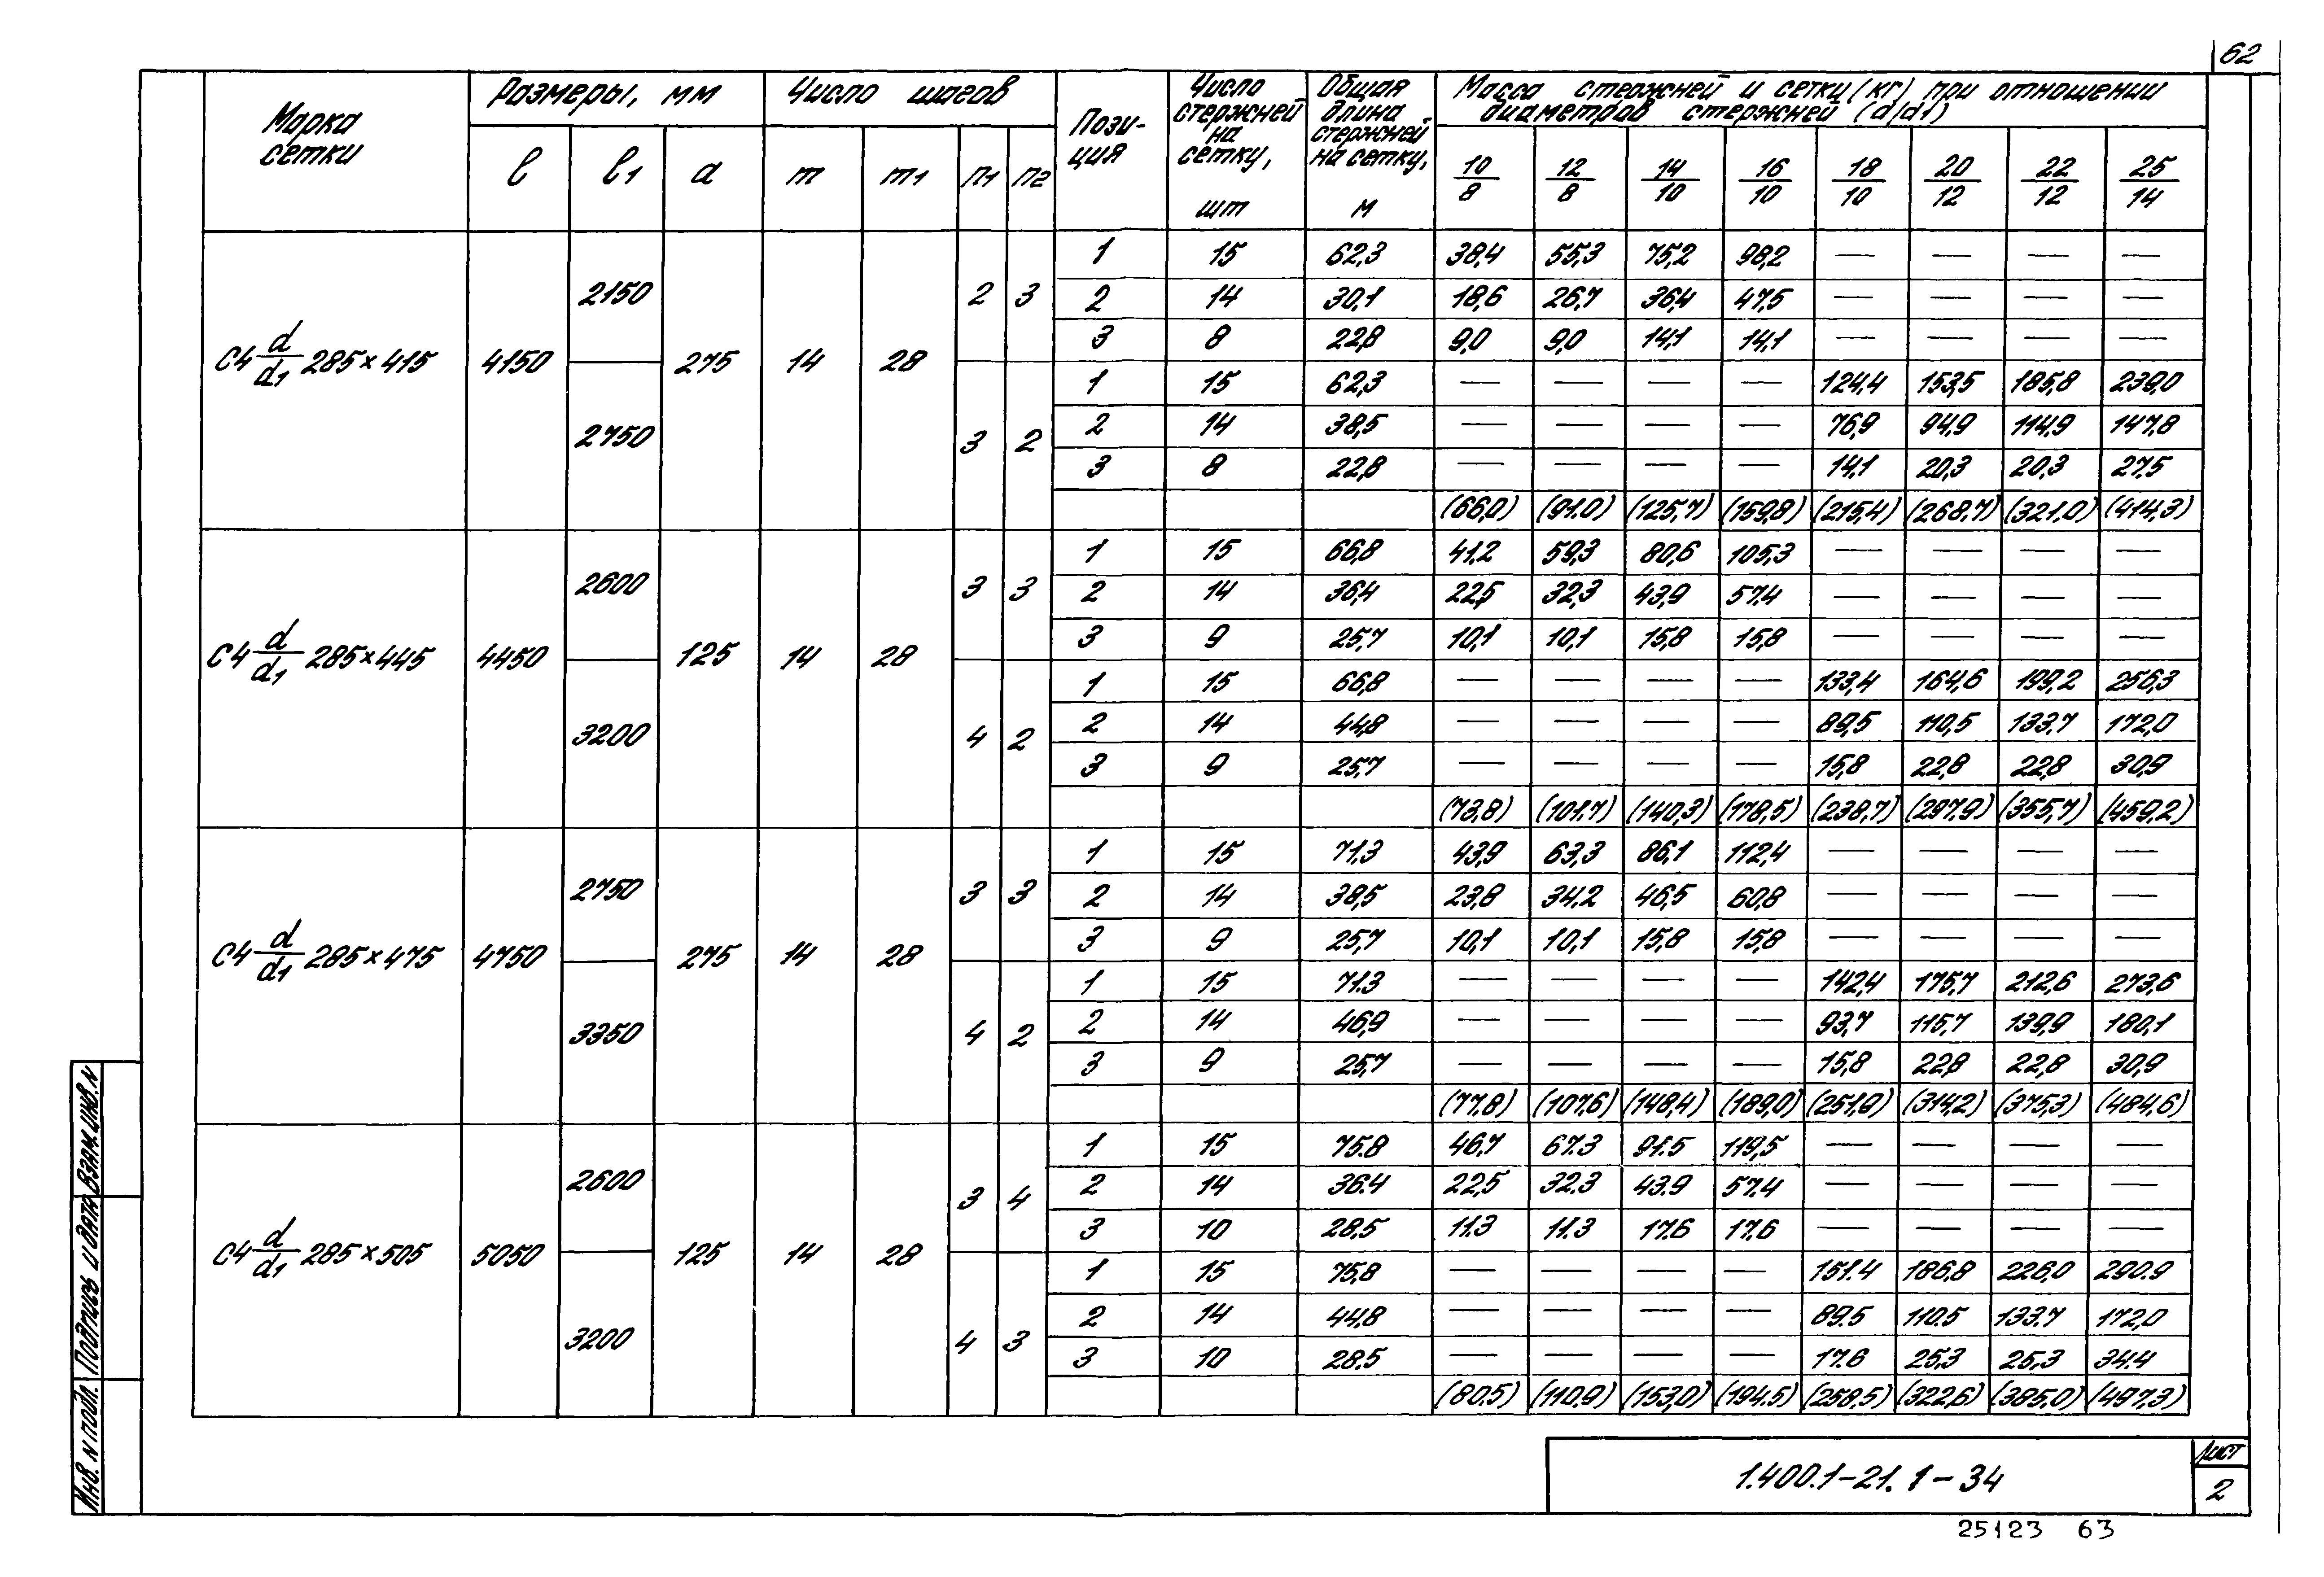 62
Марка сетки | Размеры, мм | Число шагов | Позиция | Число стержней на сетку, шт | Общая длина стержней на сетку, м | Масса стержней и сетки (кг) при отношении диаметров стержней (d/d1)
l | l1 | a | m | m1 | n1 | n2 | 10/8 | 12/8 | 14/10 | 16/10 | 18/10 | 20/12 | 22/12 | 25/14
С4 d/d1 285×415 | 4150 | 2150 | 275 | 14 | 28 | 2 | 3 | 1 | 15 | 62,3 | 38,4 | 55,3 | 75,2 | 98,2 | — | — | — | —
2 | 14 | 30,1 | 18,6 | 26,7 | 36,4 | 47,5 | — | — | — | —
3 | 8 | 22,8 | 9,0 | 9,0 | 14,1 | 14,1 | — | — | — | —
2750 | 3 | 2 | 1 | 15 | 62,3 | — | — | — | — | 124,4 | 153,5 | 185,8 | 239,0
2 | 14 | 38,5 | — | — | — | — | 76,9 | 94,9 | 114,9 | 147,8
3 | 8 | 22,8 | — | — | — | — | 14,1 | 20,3 | 20,3 | 27,5
(66,0) | (91.0) | (125,7) | (159,8) | (215,4) | (268,7) | (321.0) | (414,3)
С4 d/d1 285×445 | 4450 | 2600 | 125 | 14 | 28 | 3 | 3 | 1 | 15 | 66,8 | 41,2 | 59,3 | 80,6 | 105,3 | — | — | — | —
2 | 14 | 36,4 | 22,5 | 32,3 | 43,9 | 57,4 | — | — | — | —
3 | 9 | 25,7 | 10,1 | 10,1 | 15,8 | 15,8 | — | — | — | —
3200 | 4 | 2 | 1 | 15 | 66,8 | — | — | — | — | 133,4 | 164,6 | 199,2 | 256,3
2 | 14 | 44,8 | — | — | — | — | 89,5 | 110,5 | 133,7 | 172,0
3 | 9 | 25,7 | — | — | — | — | 15,8 | 22,8 | 22,8 | 30,9
(73,8) | (101.7) | (140,3) | (178,5) | (238,7) | (297,9) | (355,7) | (459,2)
С4 d/d1 285×475 | 4750 | 2750 | 275 | 14 | 28 | 3 | 3 | 1 | 15 | 71.3 | 43,9 | 63,3 | 86,1 | 112,4 | — | — | — | —
2 | 14 | 38,5 | 23,8 | 34,2 | 46,5 | 60,8 | — | — | — | —
3 | 9 | 25,7 | 10,1 | 10,1 | 15,8 | 15,8 | — | — | — | —
3350 | 4 | 2 | 1 | 15 | 71.3 | — | — | — | — | 142,4 | 175,7 | 212,6 | 273,6
2 | 14 | 46,9 | — | — | — | — | 93,7 | 115,7 | 139,9 | 180,1
3 | 9 | 25,7 | — | — | — | — | 15,8 | 22,8 | 22,8 | 30,9
(77,8) | (107,6) | (148,4) | (189,0) | (251,9) | (314,2) | (375,3) | (484,6)
С4 d/d1 285×505 | 5050 | 2600 | 125 | 14 | 28 | 3 | 4 | 1 | 15 | 75.8 | 46,7 | 67.3 | 91.5 | 119,5 | — | — | — | —
2 | 14 | 36.4 | 22,5 | 32.3 | 43.9 | 57.4 | — | — | — | —
3 | 10 | 28,5 | 11.3 | 11.3 | 17.6 | 17,6 | — | — | — | —
3200 | 4 | 3 | 1 | 15 | 75,8 | — | — | — | — | 151.4 | 186,8 | 226,0 | 290.9
2 | 14 | 44,8 | — | — | — | — | 89.5 | 110.5 | 133.7 | 172,0
3 | 10 | 28.5 | — | — | — | — | 17.6 | 25,3 | 25,3 | 34.4
(80.5) | (110,9) | (153,0) | (194.5) | (258,5) | (322,6) | (385,0) | (497,3)
Инв. N подл. Подпись и дата Взам. инв. N
1.400.1-21. 1-34
Лист
2
25123 63